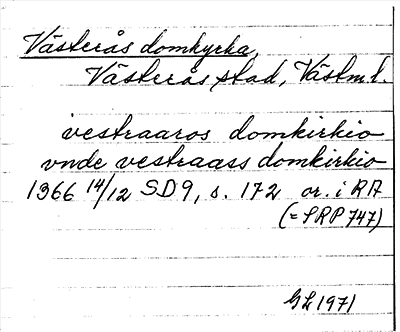 Västerås domkyrka,
Västerås stad, Västm.l.
vestraaros domkirkio
vnde vestraass domkirkio
1366 14/12 SD9, s. 172 or. i RA
(= SRP 747)
GL 1971